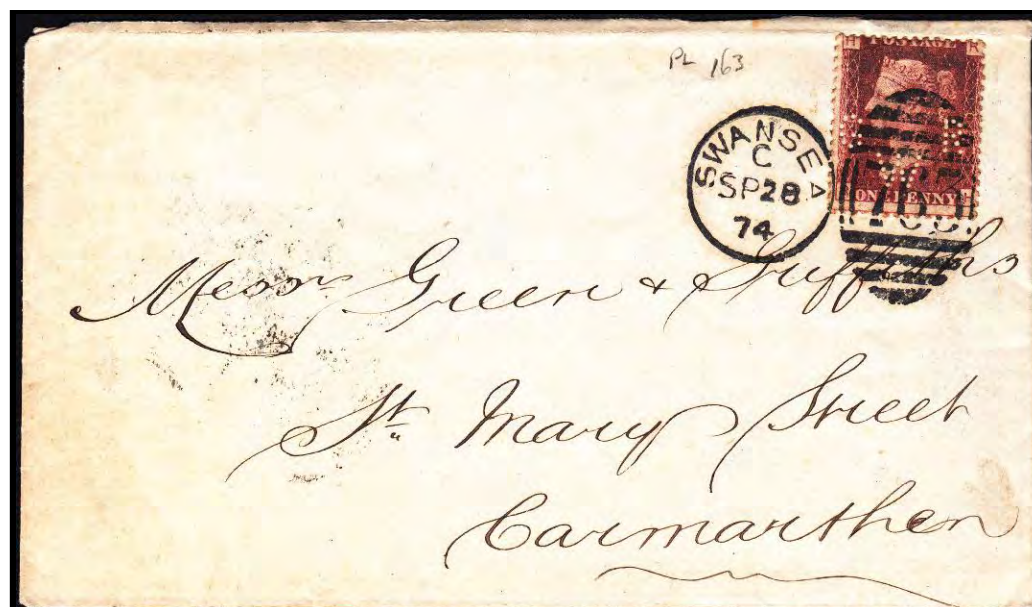 PL 163
H POSTAGE R
ONE PENNY
SWANSEA
C
SP 28
74
Messrs Green & Griffiths
St. Mary Street
Carmarthen